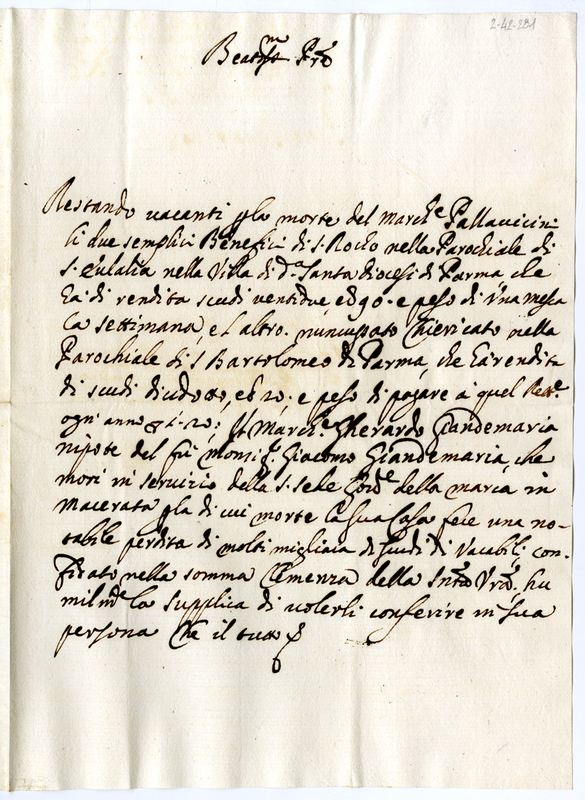 2-42-281
Beatmo Pre
Restando vacanti p la morte del Marche Pallavicini
li due semplici Benefici di S. Rocho nella Parochiale di
S. Eulalia nella Villa di da Santa diocesi di Parma che
ha di rendita scudi ventidue, e d 90. e peso di una messa
la settimana, e l altro. nuncupato Chiericato nella
Parochiale di S Bartolomeo di Parma, che ha rendita
di scudi e d 20. e peso di pagare a quel
ogni anno Il Marche Gherardo Giandemaria
nipote del fu Monsr. Giacomo Giandemaria, che
morì in servizio della S. Sede Govre della marca in
Macerata p la di cui morte la sua Casa fece una no-
tabile perdita di molti migliaia di scudi di Vacabili, con-
fidato nella somma Clemenza della Sntà Vra. hu
milmte la supplica di volerli conferire in sua
persona Che il tutto